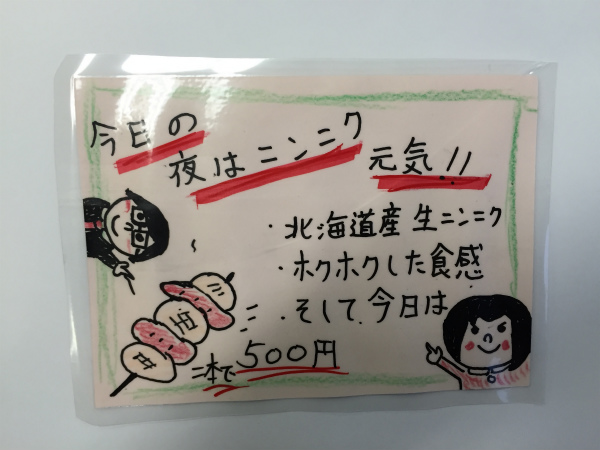 今日の
夜はニンニク
元気!!
・北海道産 生ニンニク
・ホクホクした食感
・そして、今日は
二本で500円